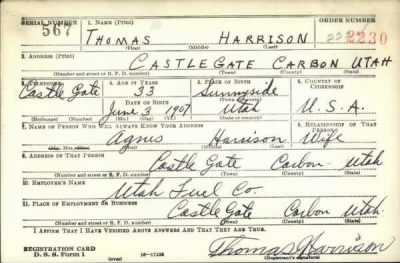 SERIAL NUMBER 1. NAME (Print) ORDER NUMBER
567 THOMAS HARRISON 2230
(First) (Middle) (Last)
2. ADDRESS (Print)
CASTLEGATE CARBON UTAH
(Number and street or R. F. D. number) (Town) (County) (State)
3. TELEPHONE 4. AGE IN YEARS 5. PLACE OF BIRTH 6. COUNTRY OF CITIZENSHIP
Castle Gate 33 Sunnyside
DATE OF BIRTH (Town or county)
June 2 1907 Utah U.S.A.
(Exchange) (Number) (Mo.) (Day) (Yr.) (State or country)
7. NAME OF PERSON WHO WILL ALWAYS KNOW YOUR ADDRESS 8. RELATIONSHIP OF THAT PERSON
Agnes Harrison Wife
(Mr., Mrs., Miss) (First) (Middle) (Last)
9. ADDRESS OF THAT PERSON
Castle Gate Carbon Utah
(Number and street or R. F. D. number) (Town) (County) (State)
10. EMPLOYER'S NAME
Utah Fuel Co.
11. PLACE OF EMPLOYMENT OR BUSINESS
Castle Gate Carbon Utah
(Number and street or R. F. D. number) (Town) (County) (State)
I AFFIRM THAT I HAVE VERIFIED ABOVE ANSWERS AND THAT THEY ARE TRUE.
REGISTRATION CARD
D. S. S. Form 1 (over) 16-17105 Thomas Harrison
(Registrant's signature)